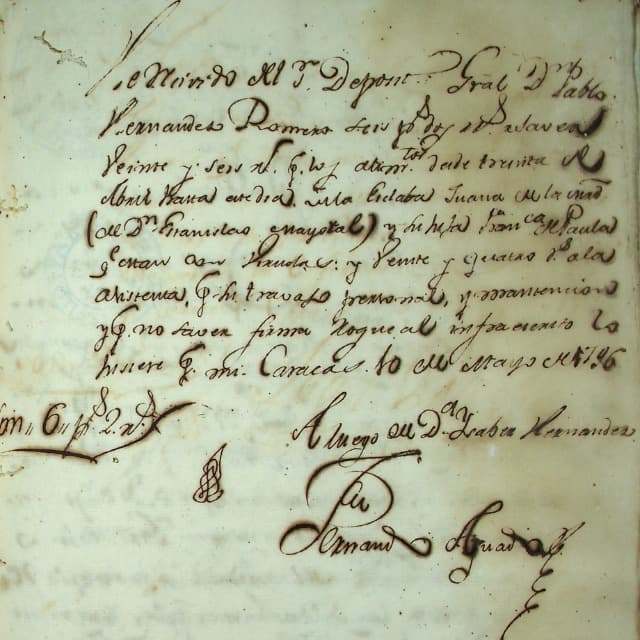 He Recivido del Sr. Deposit.° Gral Dn. Pablo
Hernandez Romero seis ps. dos rs. a saver
Veinte y seis rs. pr. los alim.tos desde treinta de
Abril hasta este dia de la Esclaba Juana de la
(de Dn. Estanislao Mayoral) y su hija Fran.ca de Paula
qe. estan con Viruelas: y Veinte y quatro rs. a la
asistenta, pr. su travajo personal, y mantencion
y pr. no saver firmar rogue al infraescrito lo
hisiere pr. mi. Caracas 10 de Mayo de 1796
Son 6 ps. 2 rs.
A ruego de Da. Ysabel Hernandez
Fernando Aguado